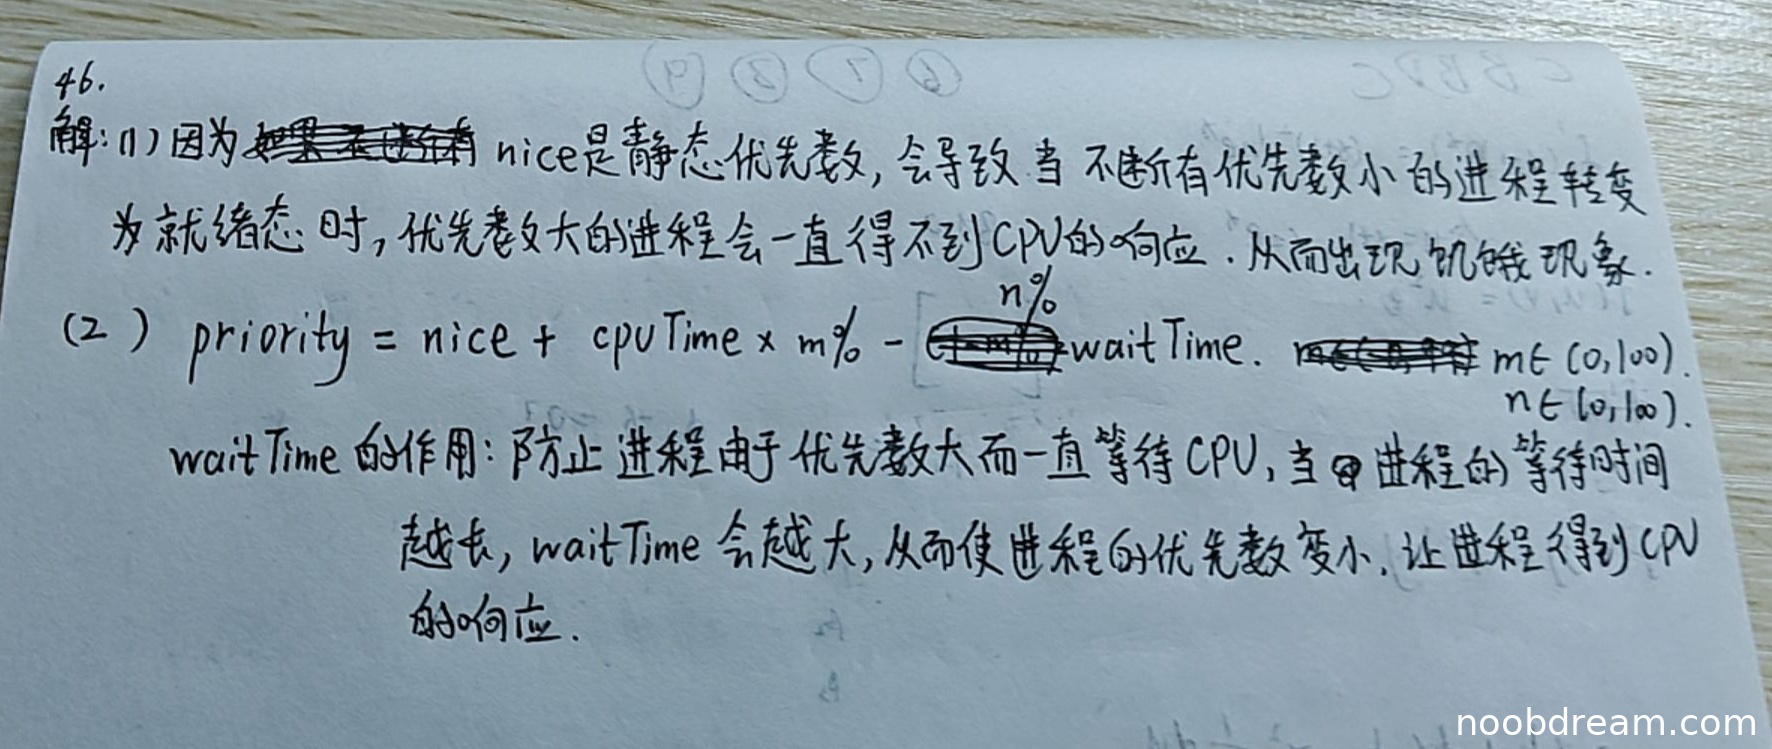 46.
解:(1)因为 nice是静态优先数,会导致当不断有优先数小的进程转变
为就绪态时,优先数大的进程会一直得不到CPU的响应.从而出现饥饿现象.
n%
(2) priority = nice + cpuTime × m% - waitTime. m∈(0,100).
n∈(0,100).
waitTime的作用:防止进程由于优先数大而一直等待CPU,当进程的等待时间
越长,waitTime会越大,从而使进程的优先数变小.让进程得到CPU
的响应.
noobdream.com